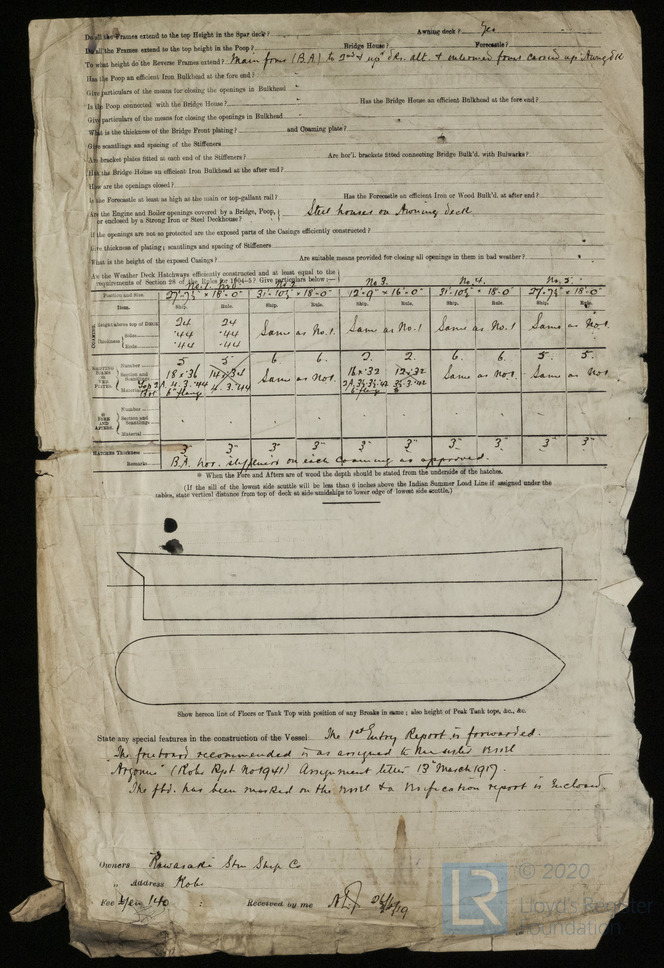 Do all the Frames extend to the top Height in the Spar deck? Awning deck? Yes
Do all the Frames extend to the top height in the Poop? Bridge House? Forecastle?
To what height do the Reverse Frames extend? Main frms (B.A.) to 2nd & upr dks. alt. & intermed frms carried up Awng dk
Has the Poop an efficient Iron Bulkhead at the fore end?
Give particulars of the means for closing the openings in Bulkhead
Is the Poop connected with the Bridge House? Has the Bridge House an efficient Bulkhead at the fore end?
Give particulars of the means for closing the openings in Bulkhead
What is the thickness of the Bridge Front plating? and Coaming plate?
Give scantlings and spacing of the Stiffeners
Are bracket plates fitted at each end of the Stiffeners? Are hor'l. brackets fitted connecting Bridge Bulk'd. with Bulwarks?
Has the Bridge House an efficient Iron Bulkhead at the after end?
How are the openings closed?
Is the Forecastle at least as high as the main or top-gallant rail? Has the Forecastle an efficient Iron or Wood Bulk'd. at after end?
Are the Engine and Boiler openings covered by a Bridge, Poop, or enclosed by a Strong Iron or Steel Deckhouse? Steel houses on Awning deck
If the openings are not so protected are the exposed parts of the Casings efficiently constructed?
Give thickness of plating; scantlings and spacing of Stiffeners
What is the height of the exposed Casings? Are suitable means provided for closing all openings in them in bad weather?
Are the Weather Deck Hatchways efficiently constructed and at least equal to the
requirements of Section 28 of the Rules for 1904-5? Give particulars below:—
No. 1 No. 3. No. 4. No. 5.
Position and Size 27'-7½" × 18'-0" 31'-10½" × 18'-0" 12'-9" × 16'-0" 31'-10½" × 18'-0" 27'-7½" × 18'-0"
Item. Ship. Rule. Ship. Rule. Ship. Rule. Ship. Rule. Ship. Rule.
COAMING. Height above top of DECK 24 24 Same as No. 1 Same as No. 1 Same as No. 1 Same as No. 1
Thickness Sides ·44 ·44
Ends ·44 ·44
Number 5 5 6. 6. 2. 2. 6. 6. 5. 5.
Section and Scantlings 18 × ·36 Same as No 1. 16 × ·32 12 × ·32 Same as No. 1 Same as No 1
Material 4.3.·44 4.3.·44
FORE AND AFTERS. Number
Section and Scantlings
Material
HATCHES Thickness 3" 3" 3" 3" 3" 3" 3" 3" 3" 3"
Remarks B.A. hor. stiffeners on each Coaming as approved.
* When the Fore and Afters are of wood the depth should be stated from the underside of the hatches.
(If the sill of the lowest side scuttle will be less than 6 inches above the Indian Summer Load Line if assigned under the
tables, state vertical distance from top of deck at side amidships to lower edge of lowest side scuttle.)
Show hereon line of Floors or Tank Top with position of any Breaks in same; also height of Peak Tank tops, &c., &c.
State any special features in the construction of the Vessel The 1st Entry Report is forwarded.
The freeboard recommended is as assigned to her sister vessel
"Argonne" (Kobe Rpt No 1941) Assignment letter 13th March 1917.
The fbd. has been marked on the vessel & a Verification report is Enclosed.
Owners Kawasaki Stm Ship Co
" Address Kobe
Fee Yen 140 : Received by me
© 2020
Lloyd's Register
Foundation
LR